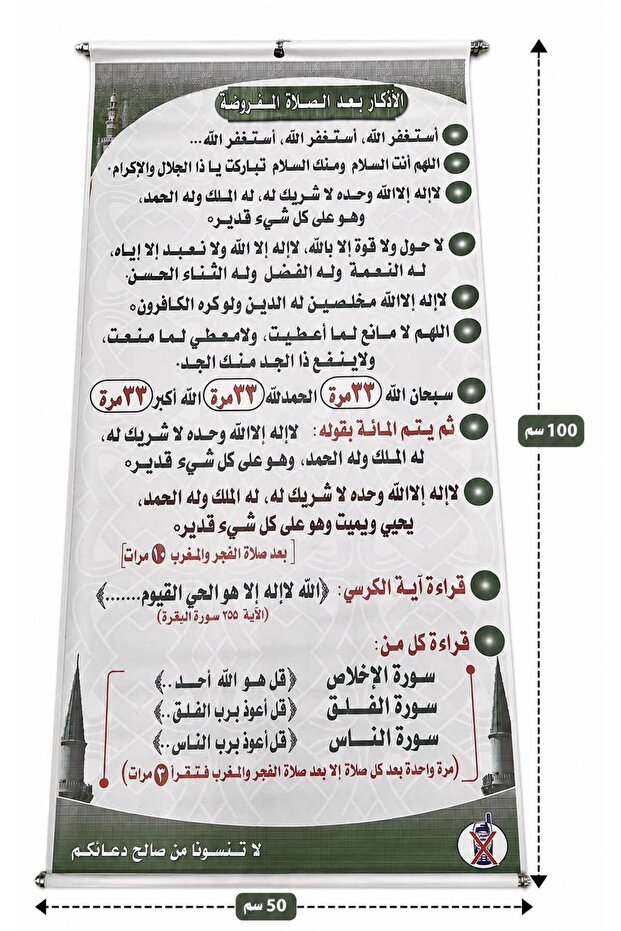 الأذكار بعد الصلاة المفروضة
أستغفر الله، أستغفر الله، أستغفر الله...
اللهم أنت السلام ومنك السلام تباركت يا ذا الجلال والإكرام.
لاإله إلاالله وحده لا شريك له، له الملك وله الحمد،
وهو على كل شيء قدير
لا حول ولا قوة إلا بالله، لاإله إلا الله ولا نعبد إلا إياه،
له النعمة وله الفضل وله الثناء الحسن.
لاإله إلاالله مخلصين له الدين ولوكره الكافرون
اللهم لا مانع لما أعطيت، ولامعطي لما منعت،
ولاينفع ذا الجد منك الجد.
سبحان الله ٣٣ مرة الحمدلله ٣٣ مرة الله أكبر ٣٣ مرة
ثم يتم المائة بقوله: لاإله إلاالله وحده لا شريك له،
له الملك وله الحمد، وهو على كل شيء قدير
لاإله إلاالله وحده لا شريك له، له الملك وله الحمد،
يحيي ويميت وهو على كل شيء قدير
[بعد صلاة الفجر والمغرب ١٠ مرات]
قراءة آية الكرسي: ﴿الله لاإله إلا هو الحي القيوم.......﴾
(الآية ٢٥٥ سورة البقرة)
قراءة كل من:
سورة الإخلاص ﴿قل هو الله أحد ..﴾
سورة الفلق ﴿قل أعوذ برب الفلق ..﴾
سورة الناس ﴿قل أعوذ برب الناس ..﴾
(مرة واحدة بعد كل صلاة إلا بعد صلاة الفجر والمغرب فتقرأ ٣ مرات)
لا تنسونا من صالح دعائكم
100 سم
50 سم